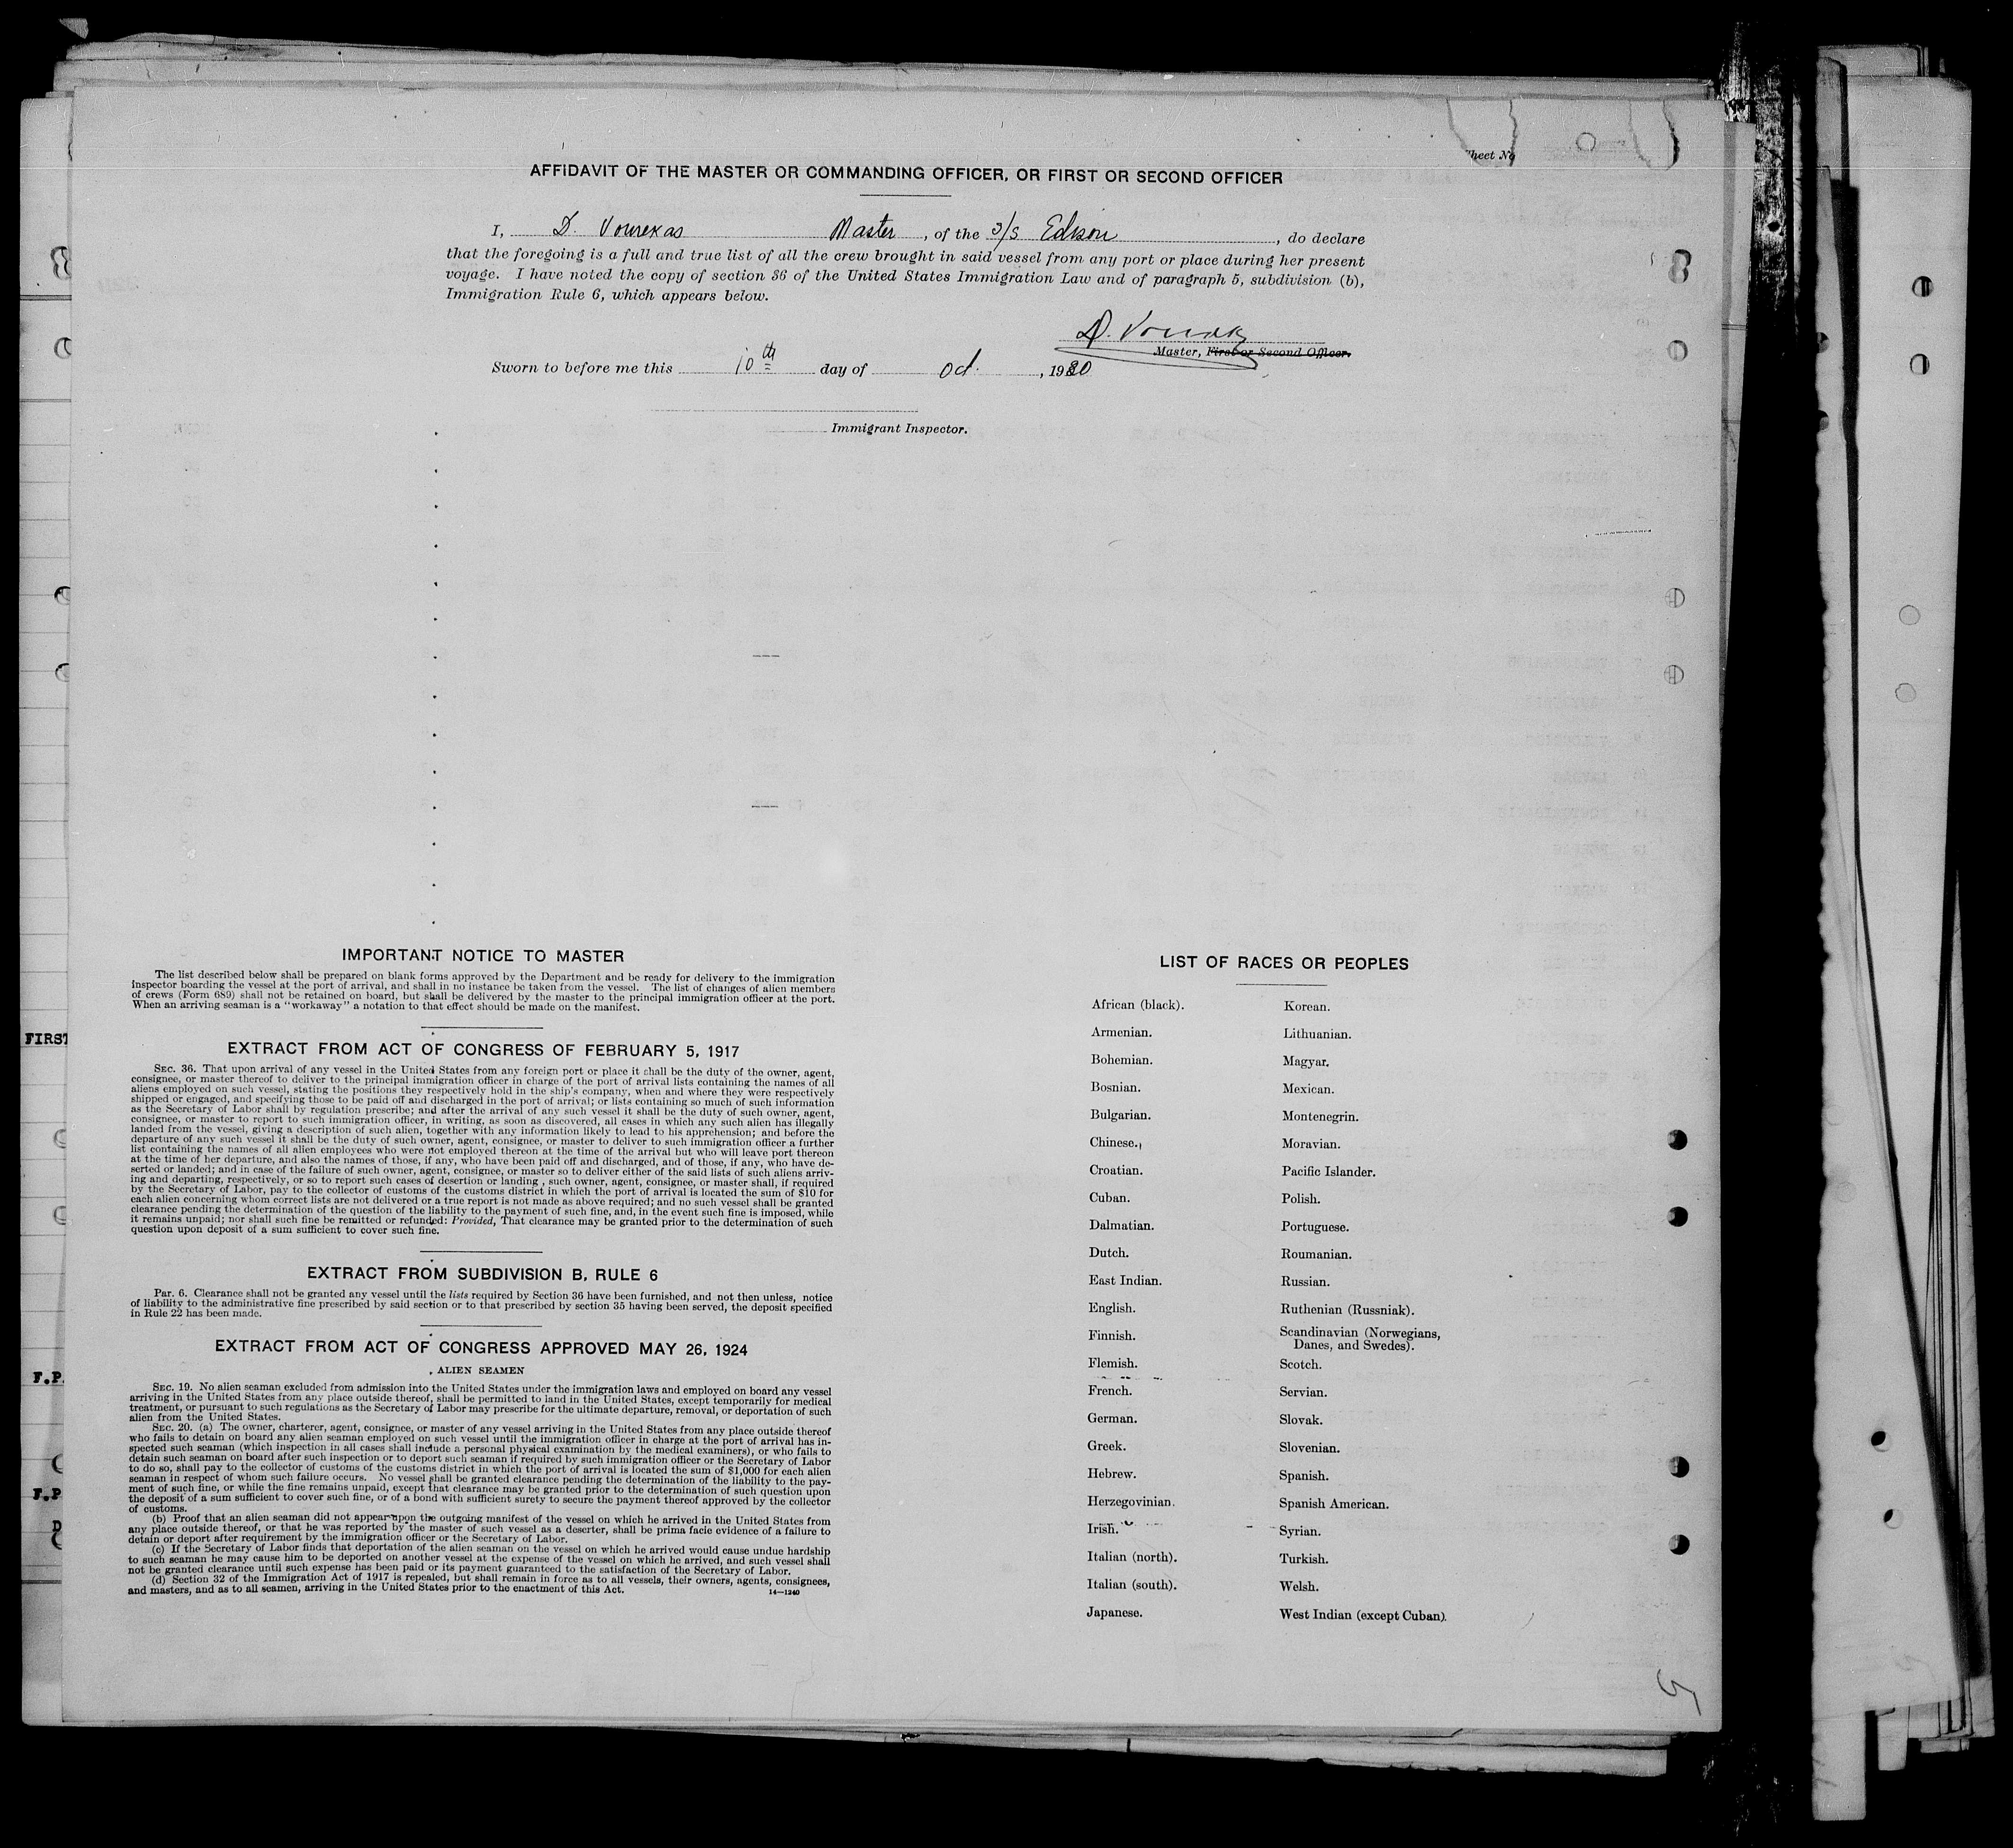 Sheet No
AFFIDAVIT OF THE MASTER OR COMMANDING OFFICER, OR FIRST OR SECOND OFFICER
I, D. Vourexas Master, of the S/S Edison, do declare
that the foregoing is a full and true list of all the crew brought in said vessel from any port or place during her present
voyage. I have noted the copy of section 36 of the United States Immigration Law and of paragraph 5, subdivision (b),
Immigration Rule 6, which appears below.
Master, First or Second Officer.
Sworn to before me this 10th day of Oct., 1930
Immigrant Inspector.
IMPORTANT NOTICE TO MASTER
The list described below shall be prepared on blank forms approved by the Department and be ready for delivery to the immigration
inspector boarding the vessel at the port of arrival, and shall in no instance be taken from the vessel. The list of changes of alien members
of crews (Form 689) shall not be retained on board, but shall be delivered by the master to the principal immigration officer at the port.
When an arriving seaman is a "workaway" a notation to that effect should be made on the manifest.
EXTRACT FROM ACT OF CONGRESS OF FEBRUARY 5, 1917
SEC. 36. That upon arrival of any vessel in the United States from any foreign port or place it shall be the duty of the owner, agent,
consignee, or master thereof to deliver to the principal immigration officer in charge of the port of arrival lists containing the names of all
aliens employed on such vessel, stating the positions they respectively hold in the ship's company, when and where they were respectively
shipped or engaged, and specifying those to be paid off and discharged in the port of arrival; or lists containing so much of such information
as the Secretary of Labor shall by regulation prescribe; and after the arrival of any such vessel it shall be the duty of such owner, agent,
consignee, or master to report to such immigration officer, in writing, as soon as discovered, all cases in which any such alien has illegally
landed from the vessel, giving a description of such alien, together with any information likely to lead to his apprehension; and before the
departure of any such vessel it shall be the duty of such owner, agent, consignee, or master to deliver to such immigration officer a further
list containing the names of all alien employees who were not employed thereon at the time of the arrival but who will leave port thereon
at the time of her departure, and also the names of those, if any, who have been paid off and discharged, and of those, if any, who have de-
serted or landed; and in case of the failure of such owner, agent, consignee, or master so to deliver either of the said lists of such aliens arriv-
ing and departing, respectively, or so to report such cases of desertion or landing , such owner, agent, consignee, or master shall, if required
by the Secretary of Labor, pay to the collector of customs of the customs district in which the port of arrival is located the sum of $10 for
each alien concerning whom correct lists are not delivered or a true report is not made as above required; and no such vessel shall be granted
clearance pending the determination of the question of the liability to the payment of such fine, and, in the event such fine is imposed, while
it remains unpaid; nor shall such fine be remitted or refunded: Provided, That clearance may be granted prior to the determination of such
question upon deposit of a sum sufficient to cover such fine.
EXTRACT FROM SUBDIVISION B, RULE 6
Par. 6. Clearance shall not be granted any vessel until the lists required by Section 36 have been furnished, and not then unless, notice
of liability to the administrative fine prescribed by said section or to that prescribed by section 35 having been served, the deposit specified
in Rule 22 has been made.
EXTRACT FROM ACT OF CONGRESS APPROVED MAY 26, 1924
ALIEN SEAMEN
SEC. 19. No alien seaman excluded from admission into the United States under the immigration laws and employed on board any vessel
arriving in the United States from any place outside thereof, shall be permitted to land in the United States, except temporarily for medical
treatment, or pursuant to such regulations as the Secretary of Labor may prescribe for the ultimate departure, removal, or deportation of such
alien from the United States.
SEC. 20. (a) The owner, charterer, agent, consignee, or master of any vessel arriving in the United States from any place outside thereof
who fails to detain on board any alien seaman employed on such vessel until the immigration officer in charge at the port of arrival has in-
spected such seaman (which inspection in all cases shall include a personal physical examination by the medical examiners), or who fails to
detain such seaman on board after such inspection or to deport such seaman if required by such immigration officer or the Secretary of Labor
to do so, shall pay to the collector of customs of the customs district in which the port of arrival is located the sum of $1,000 for each alien
seaman in respect of whom such failure occurs. No vessel shall be granted clearance pending the determination of the liability to the pay-
ment of such fine, or while the fine remains unpaid, except that clearance may be granted prior to the determination of such question upon
the deposit of a sum sufficient to cover such fine, or of a bond with sufficient surety to secure the payment thereof approved by the collector
of customs.
(b) Proof that an alien seaman did not appear upon the outgoing manifest of the vessel on which he arrived in the United States from
any place outside thereof, or that he was reported by the master of such vessel as a deserter, shall be prima facie evidence of a failure to
detain or deport after requirement by the immigration officer or the Secretary of Labor.
(c) If the Secretary of Labor finds that deportation of the alien seaman on the vessel on which he arrived would cause undue hardship
to such seaman he may cause him to be deported on another vessel at the expense of the vessel on which he arrived, and such vessel shall
not be granted clearance until such expense has been paid or its payment guaranteed to the satisfaction of the Secretary of Labor.
(d) Section 32 of the Immigration Act of 1917 is repealed, but shall remain in force as to all vessels, their owners, agents, consignees,
and masters, and as to all seamen, arriving in the United States prior to the enactment of this Act.
14—1240
LIST OF RACES OR PEOPLES
African (black).
Armenian.
Bohemian.
Bosnian.
Bulgarian.
Chinese.
Croatian.
Cuban.
Dalmatian.
Dutch.
East Indian.
English.
Finnish.
Flemish.
French.
German.
Greek.
Hebrew.
Herzegovinian.
Irish.
Italian (north).
Italian (south).
Japanese.
Korean.
Lithuanian.
Magyar.
Mexican.
Montenegrin.
Moravian.
Pacific Islander.
Polish.
Portuguese.
Roumanian.
Russian.
Ruthenian (Russniak).
Scandinavian (Norwegians,
Danes, and Swedes).
Scotch.
Servian.
Slovak.
Slovenian.
Spanish.
Spanish American.
Syrian.
Turkish.
Welsh.
West Indian (except Cuban).
5
FIRST
F.P.
F.P